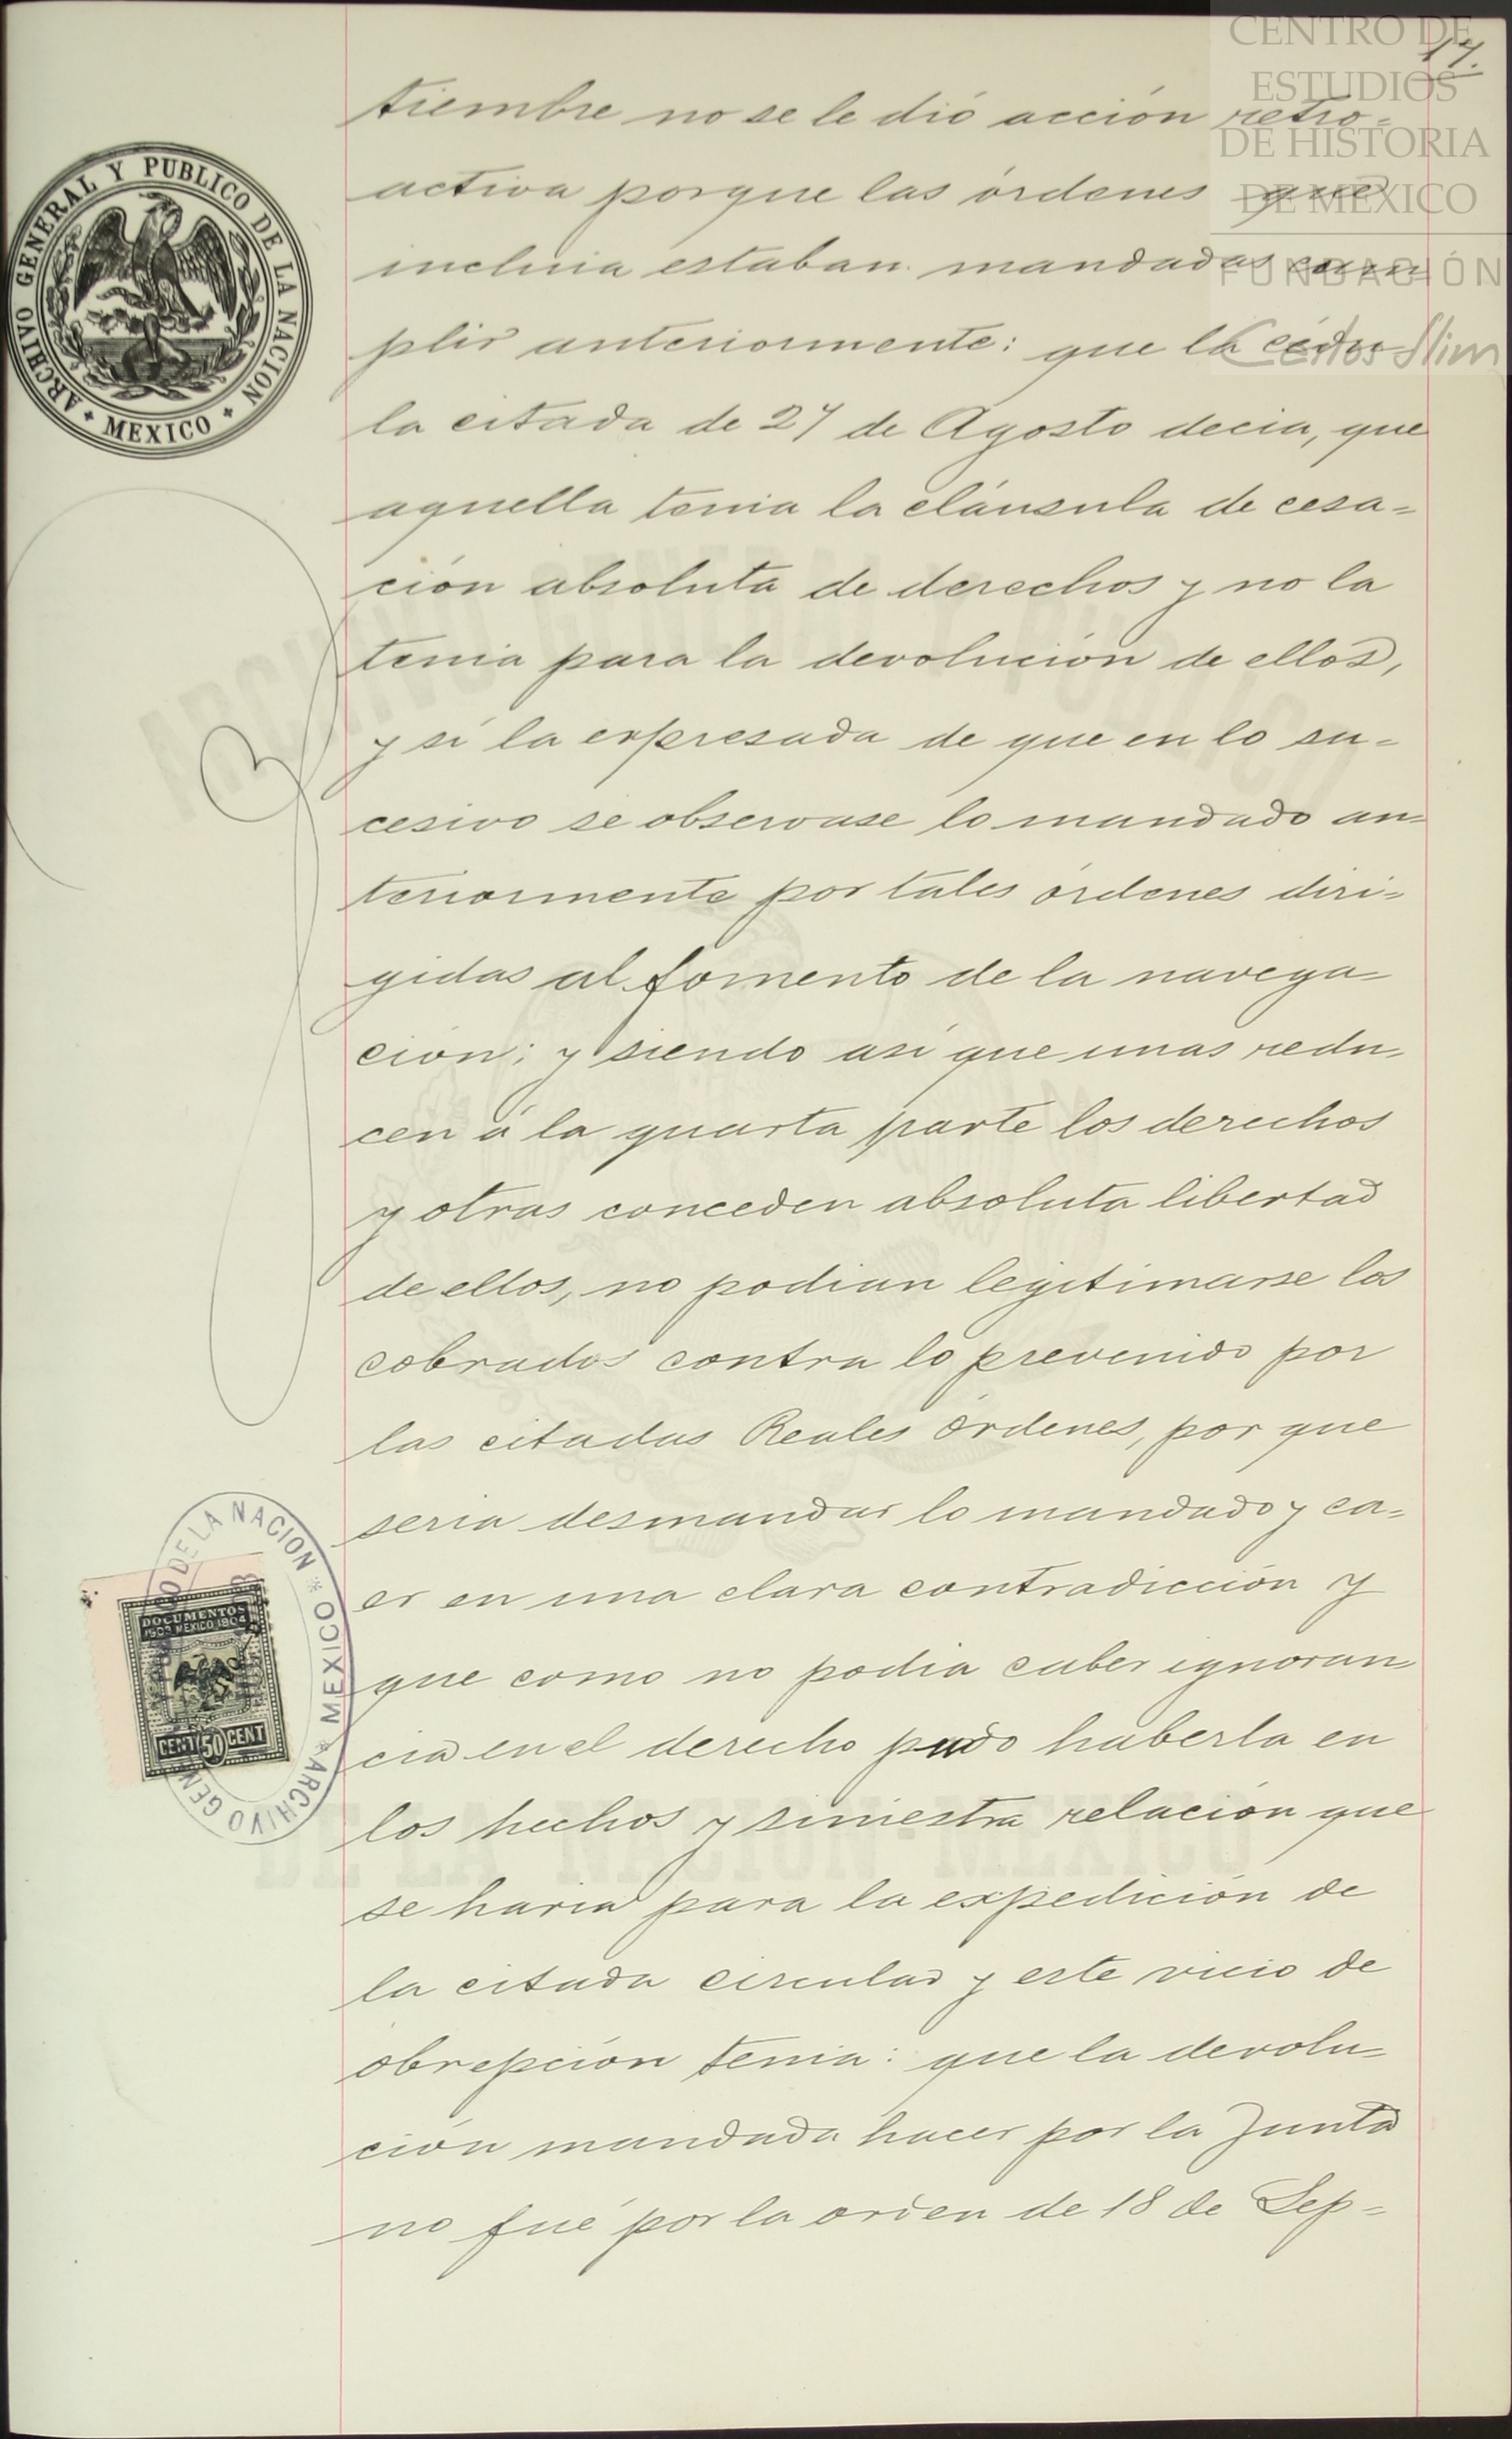 CENTRO DE
ESTUDIOS
DE HISTORIA
DE MÉXICO
FUNDACIÓN
Carlos Slim
17.
tiembre no se le dió acción retro-
activa porque las órdenes que
incluia estaban mandadas cum
plir anteriormente: que la cédu
la citada de 27 de Agosto decia, que
aquella tenia la cláusula de cesa=
ción absoluta de derechos y no la
tenia para la devolución de ellos,
y si la expresada de que en lo su=
cesivo se observase lo mandado an-
teriormente por tales órdenes diri=
gidas al fomento de la navega-
ción; y siendo asi que unas redu-
cen á la quarta parte los derechos
y otras conceden absoluta libertad
de ellos, no podian legitimarse los
cobrados contra lo prevenido por
las citadas Reales órdenes, por que
seria desmandar lo mandado y ca=
er en una clara contradicción y
que como no podia caber ignoran
cia en el derecho pudo haberla en
los hechos y siniestra relación que
se haria para la expedición de
la citada circular y este vicio de
obrepción tenia: que la devolu-
ción mandada hacer por la Junta
no fué por la orden de 18 de Sep=
ARCHIVO GENERAL Y PUBLICO DE LA NACION
MEXICO
ARCHIVO GENERAL Y PUBLICO
DE LA NACION MEXICO
DE LA NACION * MEXICO * ARCHIVO GEN
DOCUMENTOS
1903 MEXICO 1904
CENT 50 CENT